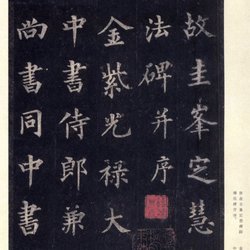 故圭峯定慧
法碑并序
金紫光禄大
中書侍郎兼
尚書同中書